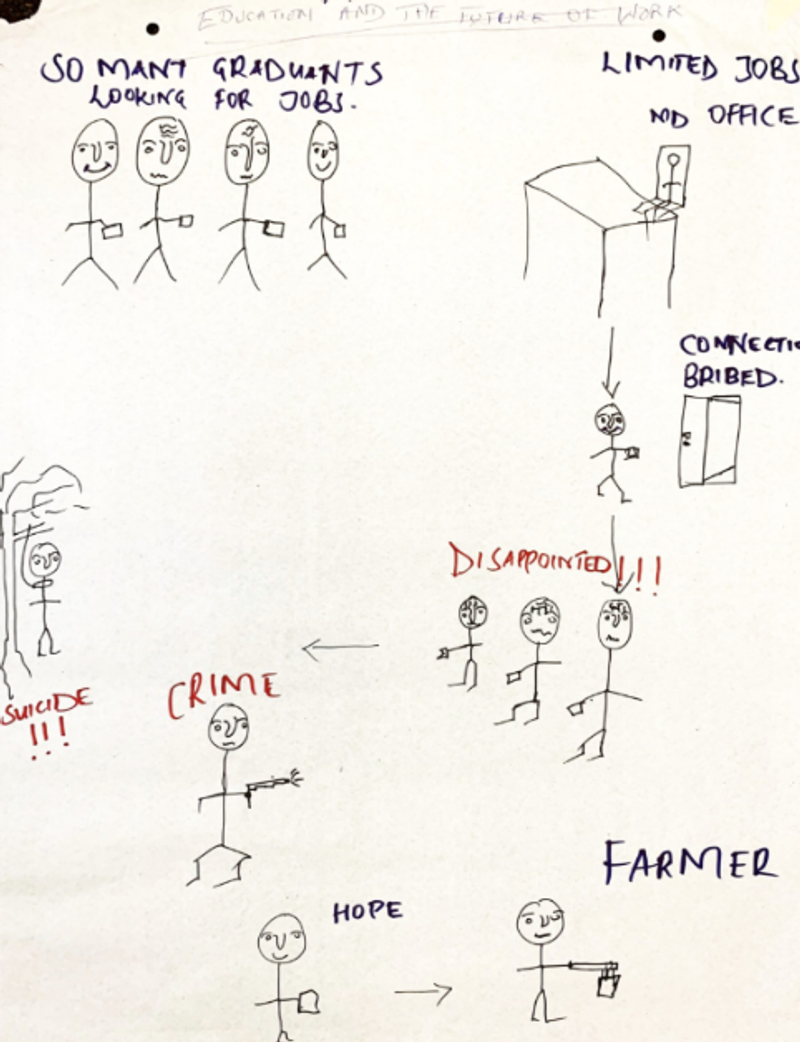 EDUCATION AND THE FUTURE OF WORK
SO MANY GRADUANTS
LOOKING FOR JOBS.
LIMITED JOBS
ND OFFICE
CONNECTIO
BRIBED.
DISAPPOINTED!!!
CRIME
SUICIDE
!!!
FARMER
HOPE